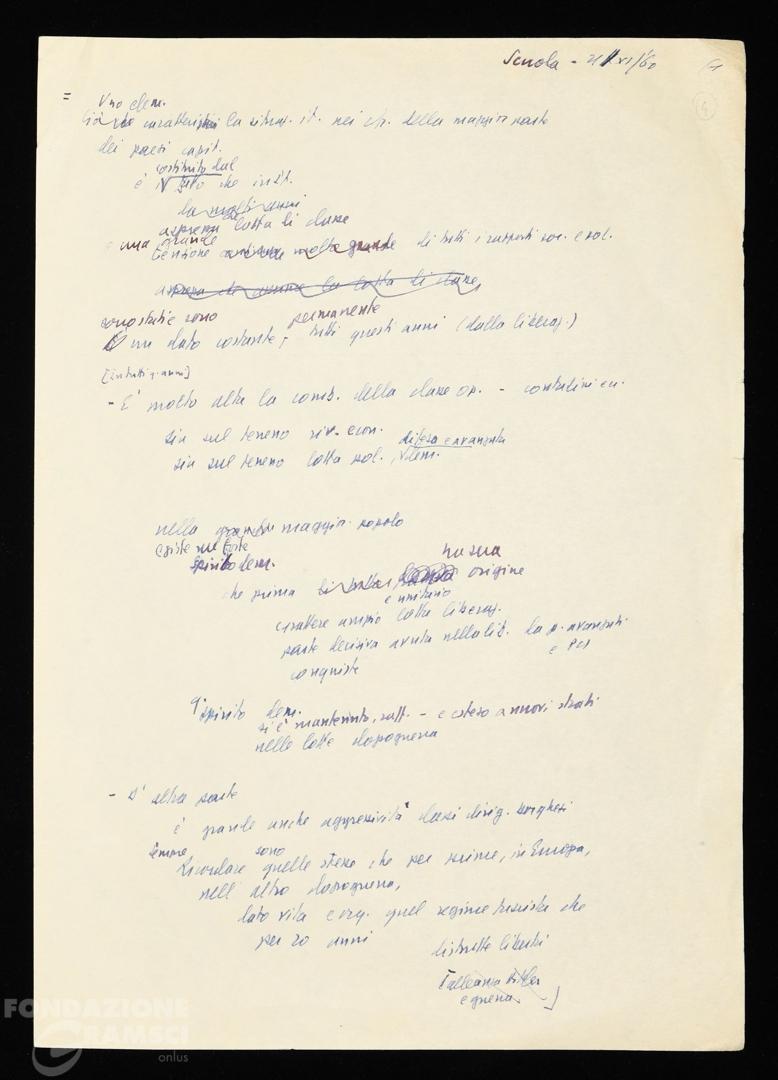 Scuola - 21/XI/60
4
=
Uno elem.
caratterist. la situaz. it. nei cfr. della maggior parte
dei paesi capit.
costituito dal
è fatto che in It.
la molti anni
asprezza lotta di classe
e una grande
tensione molto grande di tutti i rapporti soc. e pol.
asprezza che assume la lotta di classe,
sono stati e sono permanente
è un dato costante, tutti questi anni (dalla liberaz.)
[in tutti q. anni]
- E' molto alta la comb. della classe op. - contadini ecc.
sia sul terreno riv. econ.
difesa e avanzata
sia sul terreno lotta pol., dem.
nella grande maggior. popolo
esiste un forte
spirito dem.
ha sua
che prima origine
e unitario
carattere ampio lotta liberaz.
parte decisiva avuta nella lib. da p. avanzati
e PCI
conquiste
q. spirito dem.
si è mantenuto, raff. - e esteso a nuovi strati
nelle lotte dopoguerra
- D'altra parte
è grande anche aggressività classi dirig. borghesi
sempre sono
Ricordare quelle stesse che per prime, in Europa,
nell'altro dopoguerra,
dato vita e org. quel regime fascista che
per 20 anni
distrutto libertà
[alleanza Hitler
e guerra]
FONDAZIONE
GRAMSCI
onlus